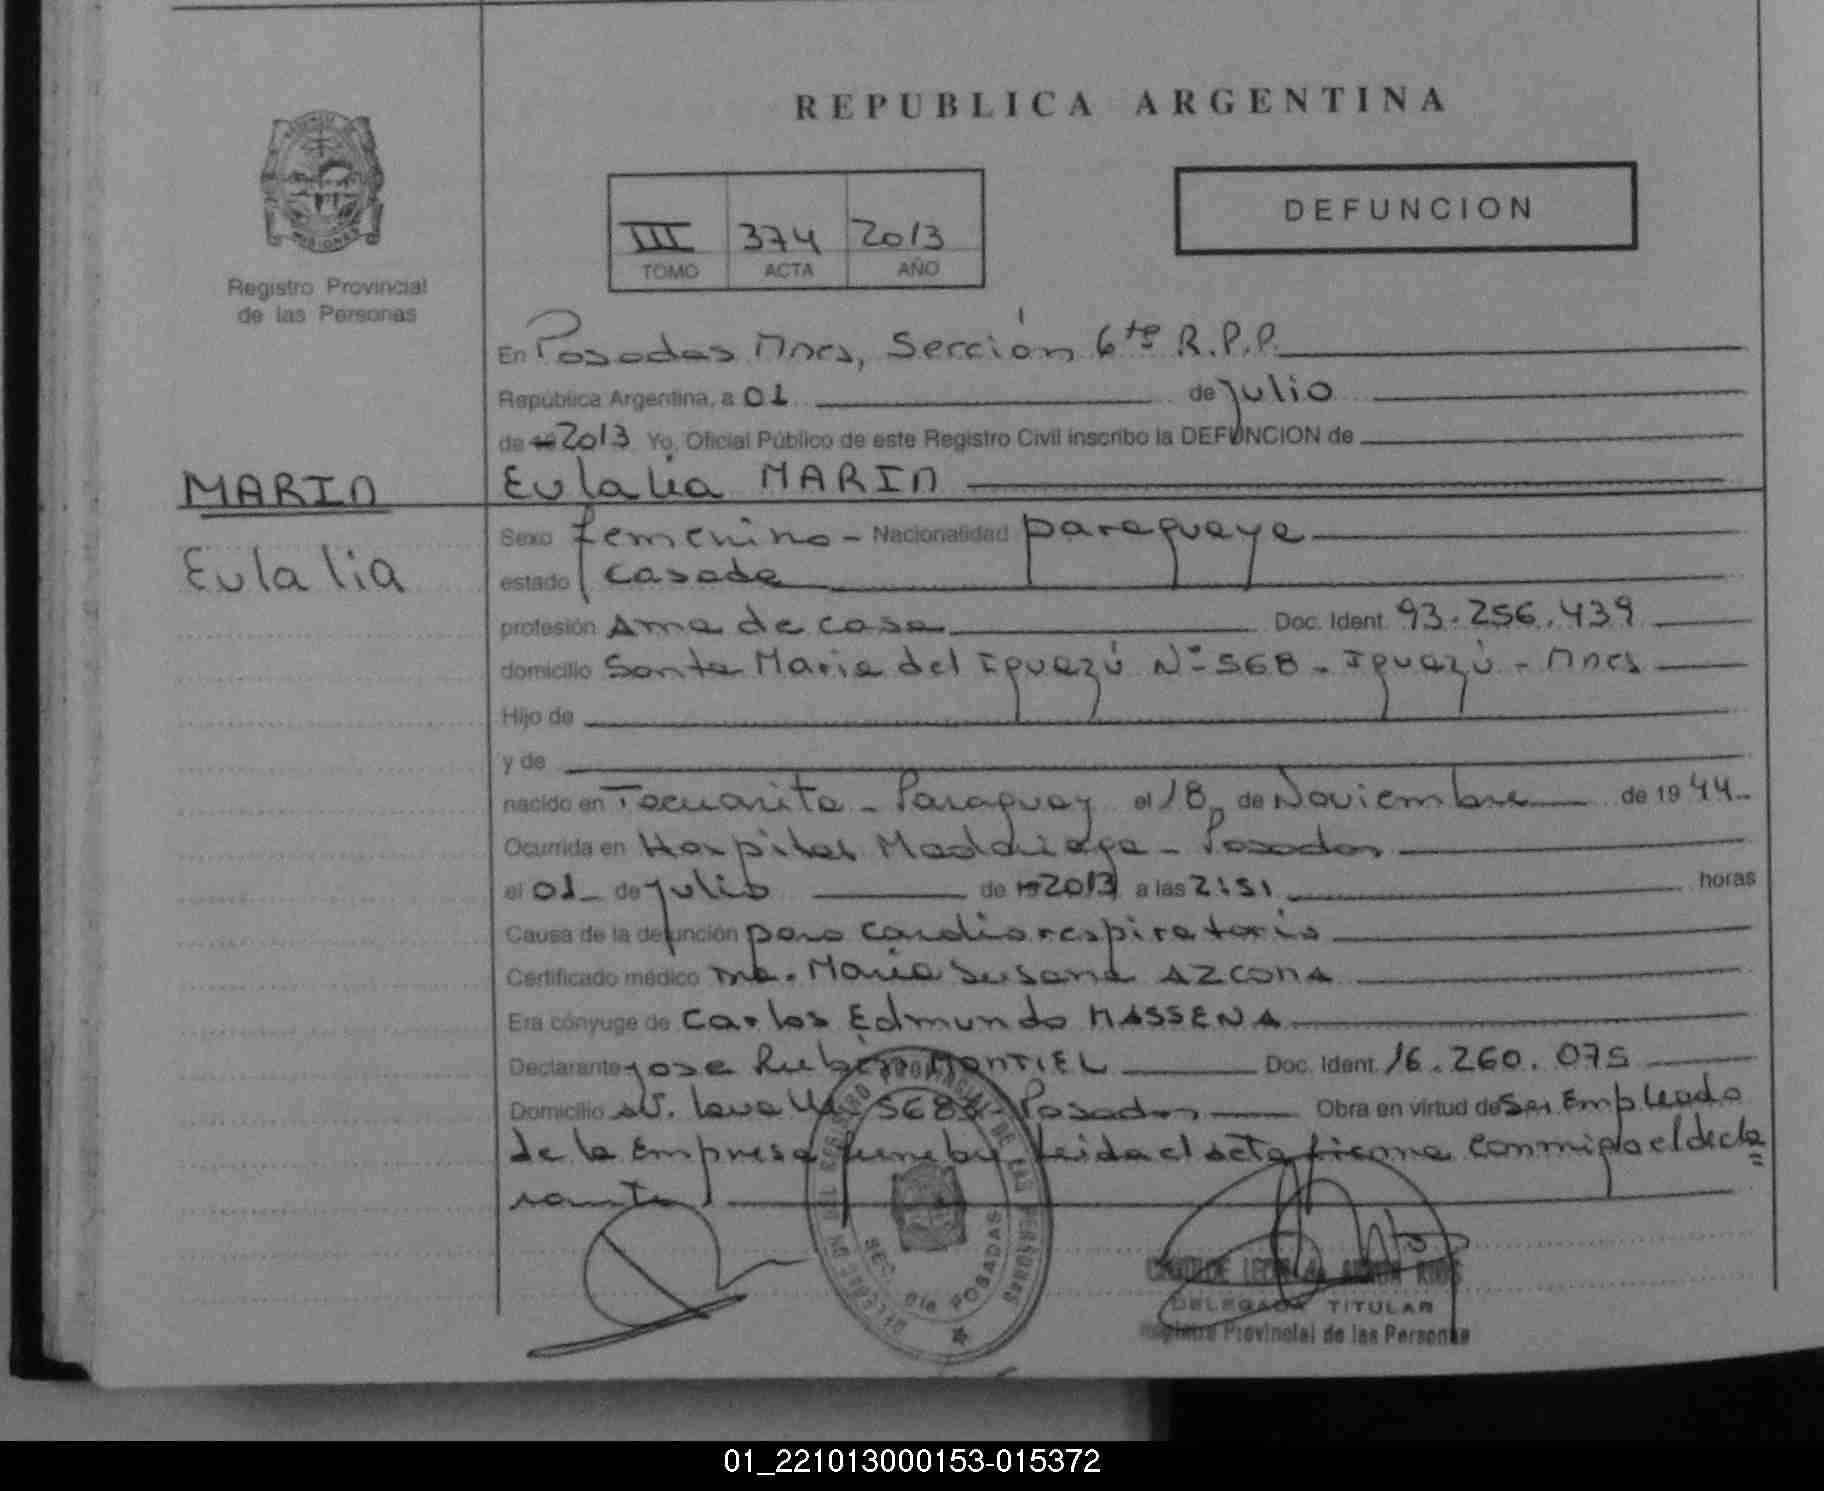 REPUBLICA ARGENTINA
DEFUNCION
III 374 2013
TOMO ACTA AÑO
MISIONES
Registro Provincial
de las Personas
En Posadas Mnes, Sección 6ta R.P.P.
República Argentina, a 01 de julio
de 2013 Yo, Oficial Público de este Registro Civil inscribo la DEFUNCION de
MARIN
Eulalia
Eulalia MARIN
Sexo femenino - Nacionalidad paraguaya
estado casada
profesión Ama de casa Doc. Ident. 93.256.439
domicilio Santa Maria del Iguazú Nº 568 - Iguazú - Mnes
Hijo de
y de
nacido en Tacuarita - Paraguay el 18 de Noviembre de 1944
Ocurrida en Hospital Madariaga - Posadas
el 01 de julio de 2013 a las 2:51 horas
Causa de la defunción paro cardiorespiratorio
Certificado médico Maria Susana AZCONA
Era cónyuge de Carlos Edmundo MASSENA
Declarante Jose Rubén MONTIEL Doc. Ident. 16.260.075
Domicilio Av. Lavalle Posadas Obra en virtud de Ser Empleado
de la Empresa funebre leida el acta firma conmigo el decla
rante
REGISTRO PROVINCIAL DE LAS PERSONAS
SEC. 6ta POSADAS
DELEGADA TITULAR
Registro Provincial de las Personas
01_221013000153-015372